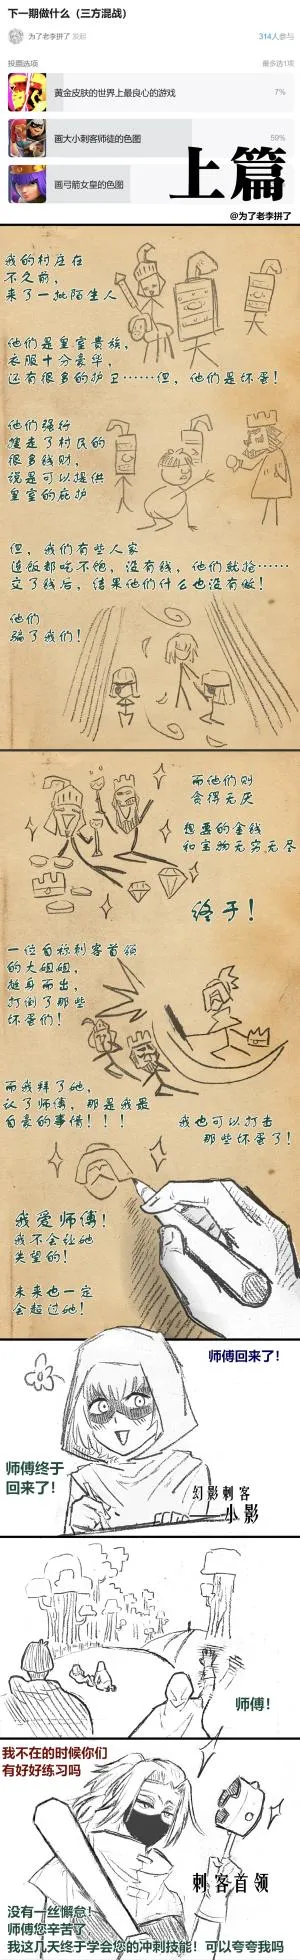 下一期做什么（三方混战）
为了老李拼了 发起
314人参与
投票选项
最多选1项
黄金皮肤的世界上最良心的游戏
7%
画大小刺客师徒的色图
59%
画弓箭女皇的色图
上篇
@为了老李拼了
我的村庄在
不久前，
来了一批陌生人
他们是皇室贵族，
衣服十分豪华，
还有很多的护卫……但，他们是坏蛋！
他们强行
搜走了村民的
很多钱财，
说是可以提供
皇室的庇护
但，我们有些人家
连饭都吃不饱，没有钱，他们就抢……
交了钱后，结果他们什么也没有做！
他们
骗了我们！
而他们则
贪得无厌
想要的金钱
和宝物无穷无尽
终于！
一位自称刺客首领
的大姐姐，
挺身而出，
打倒了那些
坏蛋们！
而我拜了她，
认了师傅，那是我最
自豪的事情！！！
我也可以打击
那些坏蛋了！
我爱师傅！
我不会让她
失望的！
未来也一定
会超过她！
师傅回来了！
师傅终于
回来了！
幻影刺客
小影
师傅！
我不在的时候你们
有好好练习吗
刺客首领
没有一丝懈怠！
师傅您辛苦了
我这几天终于学会您的冲刺技能！可以夸夸我吗